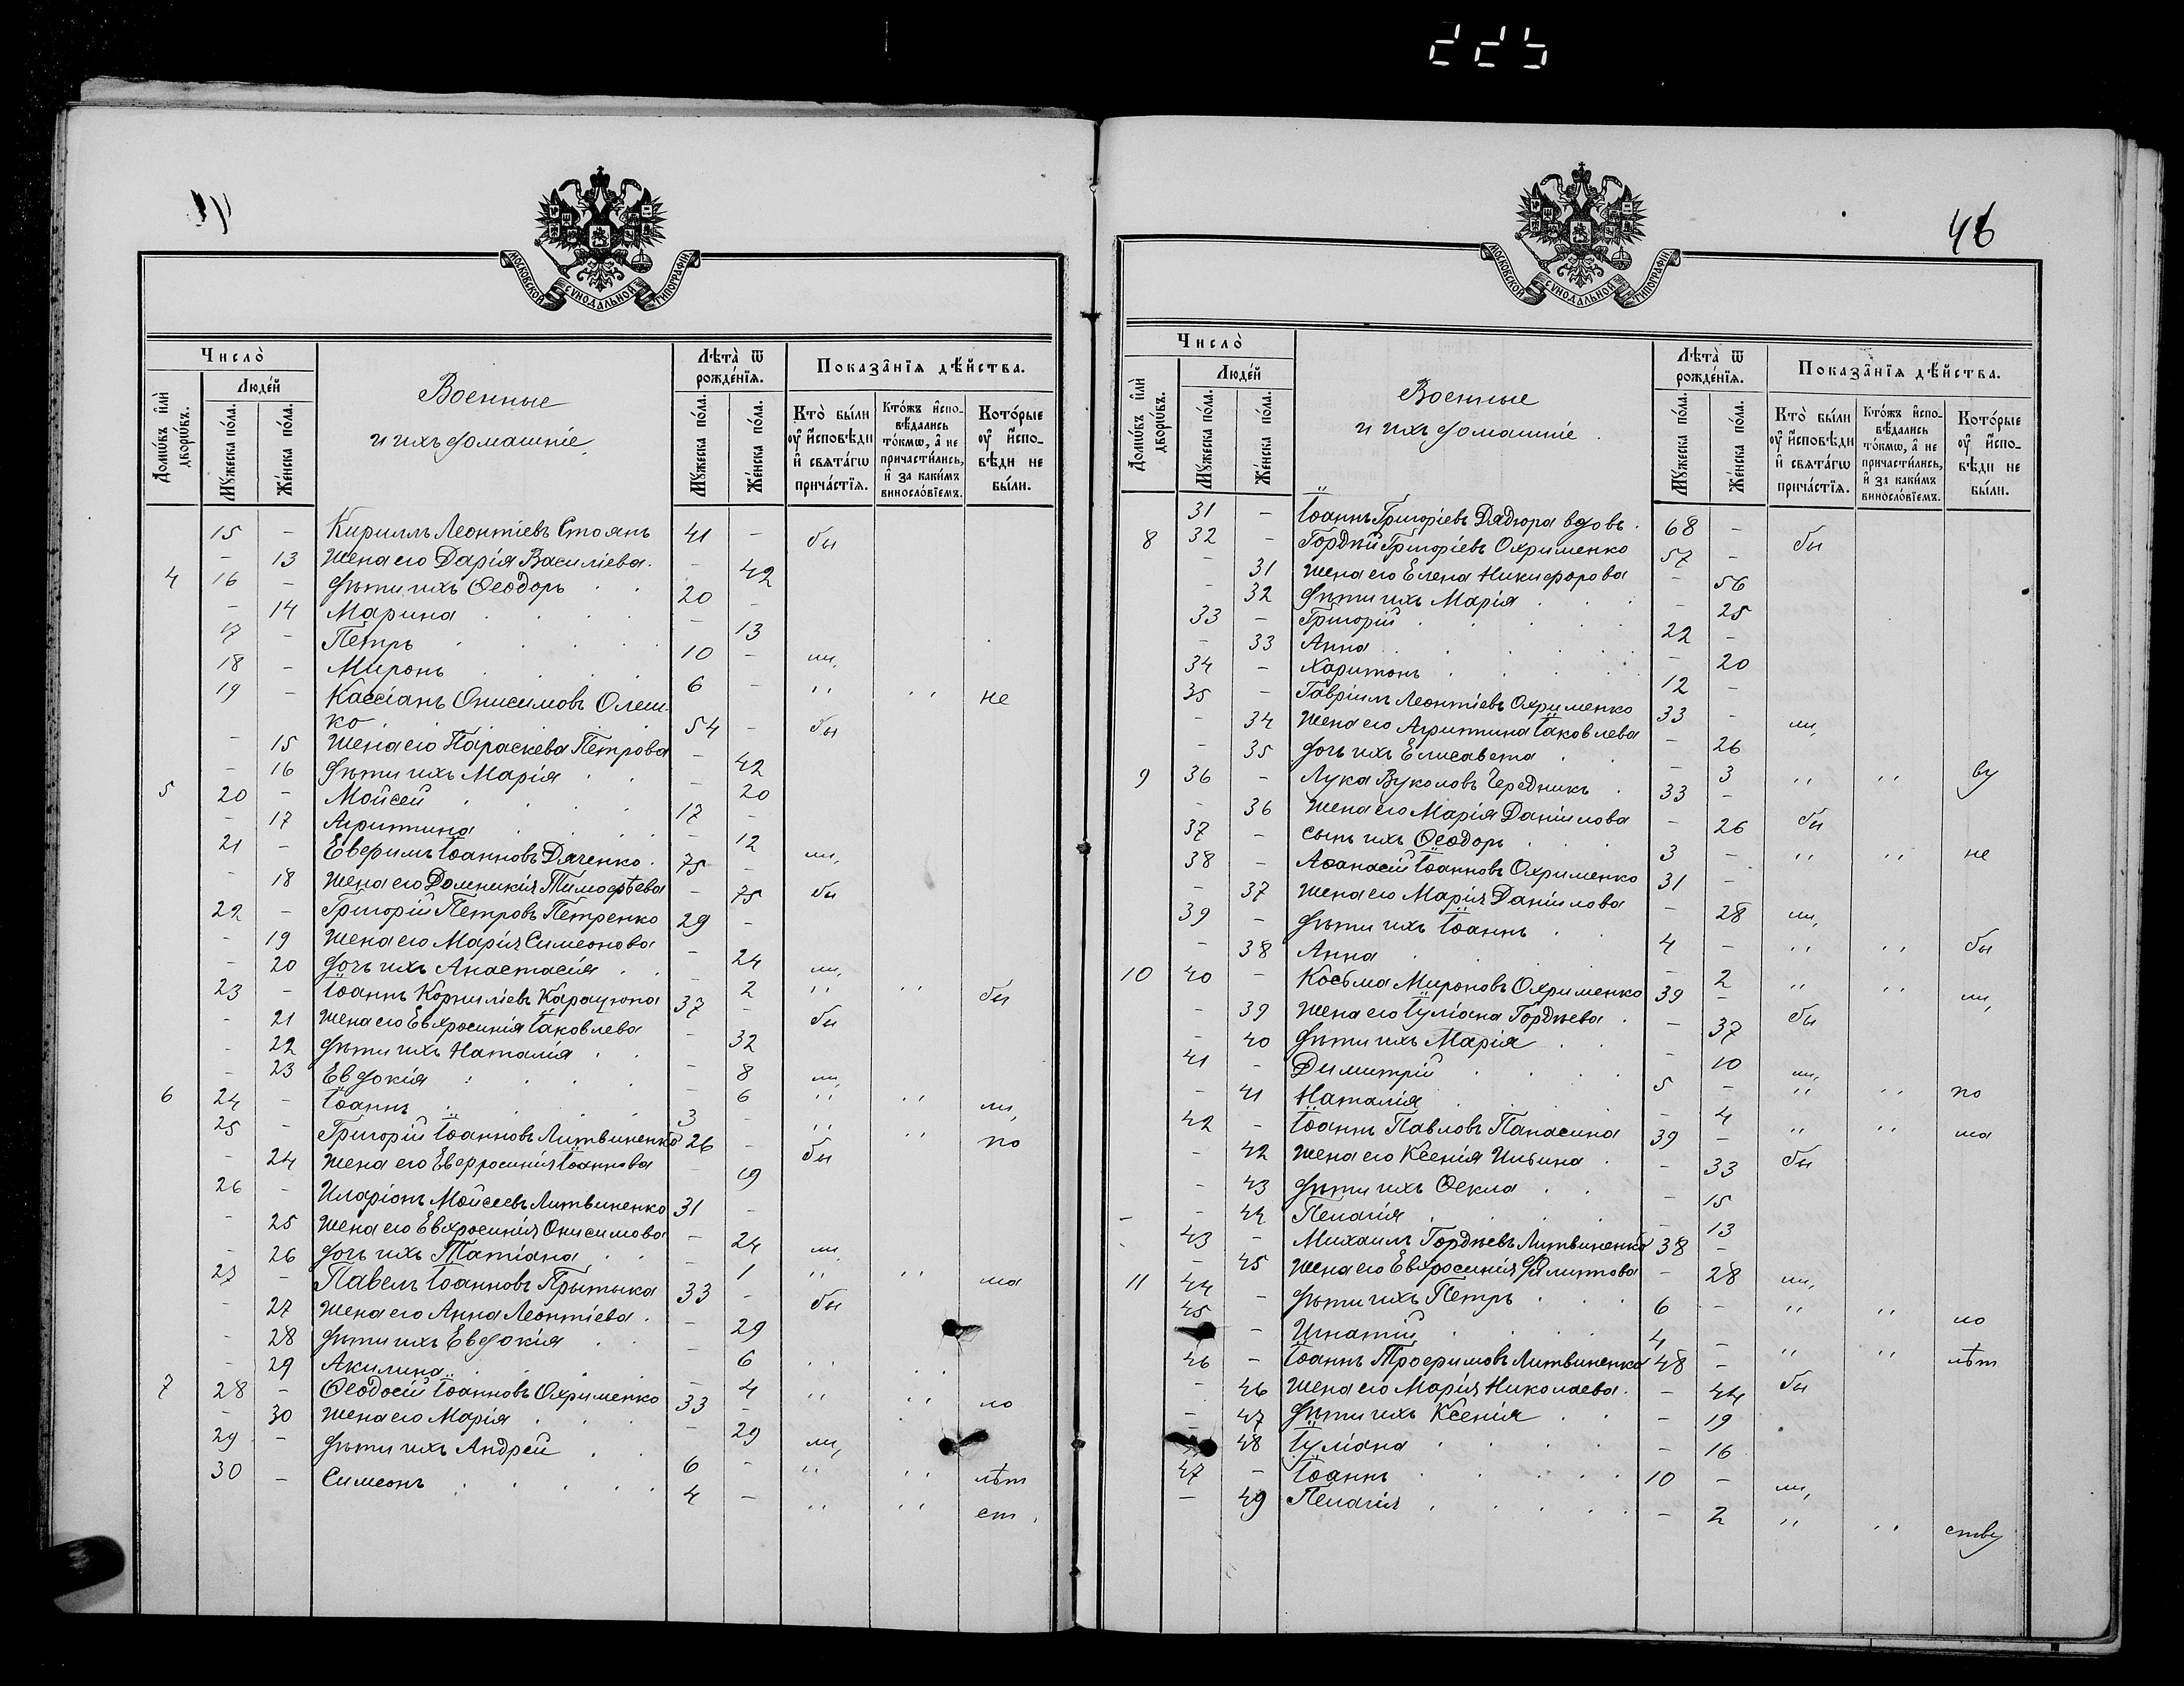 225
МОСКОВСКОЙ СУНОДАЛЬНОЙ ТИПОГРАФІИ
Число̀
Домѡ́въ и҆лѝ дворѡ́въ.
Люде́й
Мꙋ́жеска по́ла.
Же́нска по́ла.
Военные
и ихъ домашніе
Лѣта̀ ѿ рожде́нїѧ.
Мꙋ́жеска по́ла.
Же́нска по́ла.
Показа̑нїѧ дѣ́йства.
Кто̀ бы́ли ᲂу҆ и҆сповѣ́ди и҆ свѧта́гѡ прича́стїѧ.
Кто́жъ и҆спо-вѣ́дались то́кмѡ, а҆ не причасти́лись, и҆ за каки́мъ виносло́вїемъ.
Кото́рые ᲂу҆ и҆спо-вѣ́ди не бы́ли.
15 - Кириллъ Леонтіевъ Стоянъ 41 - бы
- 13 Жена его Дарія Василіева. - 42
4 16 - Дѣти ихъ Ѳеодоръ . . 20 -
- 14 Марина . . . . - 13
17 - Петръ . . . . 10 - ли,
18 - Миронъ . . . . 6 - ,, ,, не
19 - Кассіанъ Онисимовъ Олеш-
ко . . . . 54 - бы
- 15 Жена его Параскева Петрова - 42
- 16 Дѣти ихъ Марія . . - 20
5 20 - Мойсей . . . . 17 -
- 17 Агриппина . . . - 12 ли,
21 - Евфимъ Іоанновъ Дяченко . 75 -
- 18 Жена его Домникія Тимофѣева - 75 бы
22 - Григорій Петровъ Петренко 29 -
- 19 Жена его Марія Симеонова - 24 ли,
- 20 Дочь ихъ Анастасія . . - 2 ,, ,, бы
23 - Іоаннъ Корниліевъ Карацюпа 37 - бы
- 21 Жена его Евфросинія Іаковлева - 32
- 22 Дѣти ихъ Наталія . . - 8 ли,
- 23 Евдокія . . . . - 6 ,, ,, ли,
6 24 - Іоаннъ . . . . 3 - ,, ,, по
25 - Григорій Іоанновъ Литвиненко 26 - бы
- 24 Жена его Евфросинія Іоаннова - 19
26 - Иларіонъ Мойсеевъ Литвиненко 31 -
- 25 Жена его Евфросинія Онисимова - 24 ли,
- 26 Дочь ихъ Татіана . . - 1 ,, ,, ма
27 - Павелъ Іоанновъ Прытыка 33 - бы
- 27 Жена его Анна Леонтіева . - 29
- 28 Дѣти ихъ Евдокія . . - 6 ,,
- 29 Акилина . . . - 4 ,, ,, ло
7 28 - Ѳеодосій Іоанновъ Охрименко 33 -
- 30 Жена его Марія . . . - 29 ли,
29 - Дѣти ихъ Андрей . . 6 - ,, ,, лѣт
30 - Симеонъ . . . . . 4 - ,, ,, ст,
46
МОСКОВСКОЙ СУНОДАЛЬНОЙ ТИПОГРАФІИ
Число̀
Домѡ́въ и҆лѝ дворѡ́въ.
Люде́й
Мꙋ́жеска по́ла.
Же́нска по́ла.
Военные
и ихъ домашніе .
Лѣта̀ ѿ рожде́нїѧ.
Мꙋ́жеска по́ла.
Же́нска по́ла.
Показа̑нїѧ дѣ́йства.
Кто̀ бы́ли ᲂу҆ и҆сповѣ́ди и҆ свѧта́гѡ прича́стїѧ.
Кто́жъ и҆спо-вѣ́дались то́кмѡ, а҆ не причасти́лись, и҆ за каки́мъ виносло́вїемъ.
Кото́рые ᲂу҆ и҆спо-вѣ́ди не бы́ли.
31 - Іоаннъ Григоріевъ Дядюра вдовъ . 68 - бы
8 32 - Гордѣй Григоріевъ Охрименко 57 -
- 31 Жена его Елена Никифорова - 56
- 32 Дѣти ихъ Марія . . . - 25
33 - Григорій . . . . 22 -
- 33 Анна . . . . . - 20
34 - Харитонъ . . . . 12 -
35 - Гавріилъ Леонтіевъ Охрименко 33 - ли,
- 34 Жена его Агриппина Іаковлева - 26
- 35 Дочь ихъ Елисавета . . - 3 ,, ,, ву
9 36 - Лука Вуколовъ Чередникъ . 33 -
- 36 Жена его Марія Даніилова - 26 бы
37 - Сынъ ихъ Ѳеодоръ . . . 3 - ,, ,, не
38 - Аѳанасій Іоанновъ Охрименко 31 -
- 37 Жена его Марія Даніилова - 28 ли,
39 - Дѣти ихъ Іоаннъ . . 4 - ,, ,, бы
- 38 Анна . . . . - 2 ,, ,, ли,
10 40 - Косьма Мироновъ Охрименко 39 - бы
- 39 Жена его Іуліана Гордѣева . - 37
- 40 Дѣти ихъ Марія . . - 10 ли,
41 - Димитрій . . . . 5 - ,, ,, по
- 41 Наталія . . . . - 4 ,, ,, ма
42 - Іоаннъ Павловъ Панасина 39 - бы
- 42 Жена его Ксенія Ильина . - 33
- 43 Дѣти ихъ Ѳекла . . - 15
- - 44 Пелагія . . . . - 13
43 - Михаилъ Гордѣевъ Литвиненко 38 -
- 45 Жена его Евфросинія Филиппова - 28 ли,
11 44 - Дѣти ихъ Петръ . . . 6 - ,, ,, ло
45 - Игнатій . . . . 4 - ,, ,, лѣт
46 - Іоаннъ Трофимовъ Литвиненко 48 - бы
- 46 Жена его Марія Николаева . - 44
- 47 Дѣти ихъ Ксенія . . - 19
48 Іуліана . . . . - 16
47 - Іоаннъ . . . . . 10 - ли,
- 49 Пелагія . . . . . - 2 ,, ,, ству